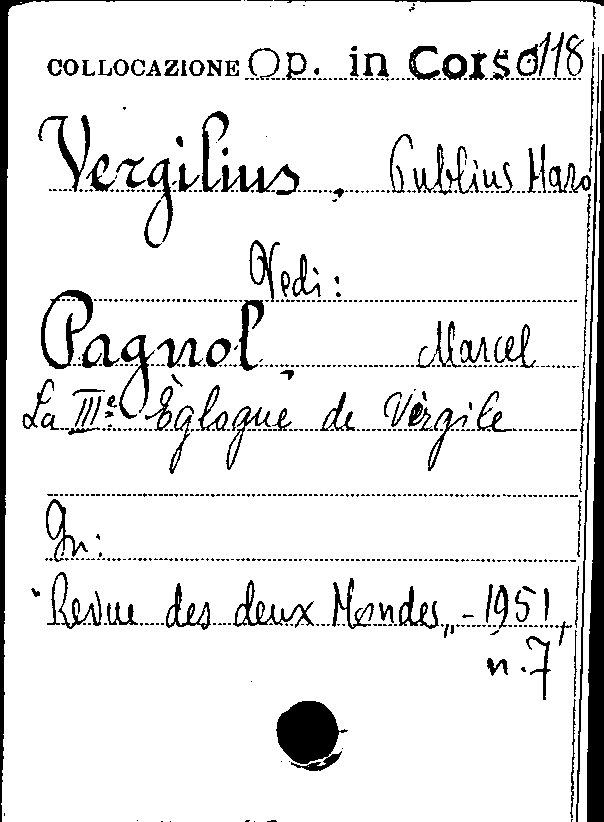 COLLOCAZIONE Op. in Corso 118
Vergilius, Publius Maro
Vedi:
Pagnol, Marcel
La IIIe Èglogue de Vèrgile
In:
"Revue des deux Mondes„ - 1951,
n. 7